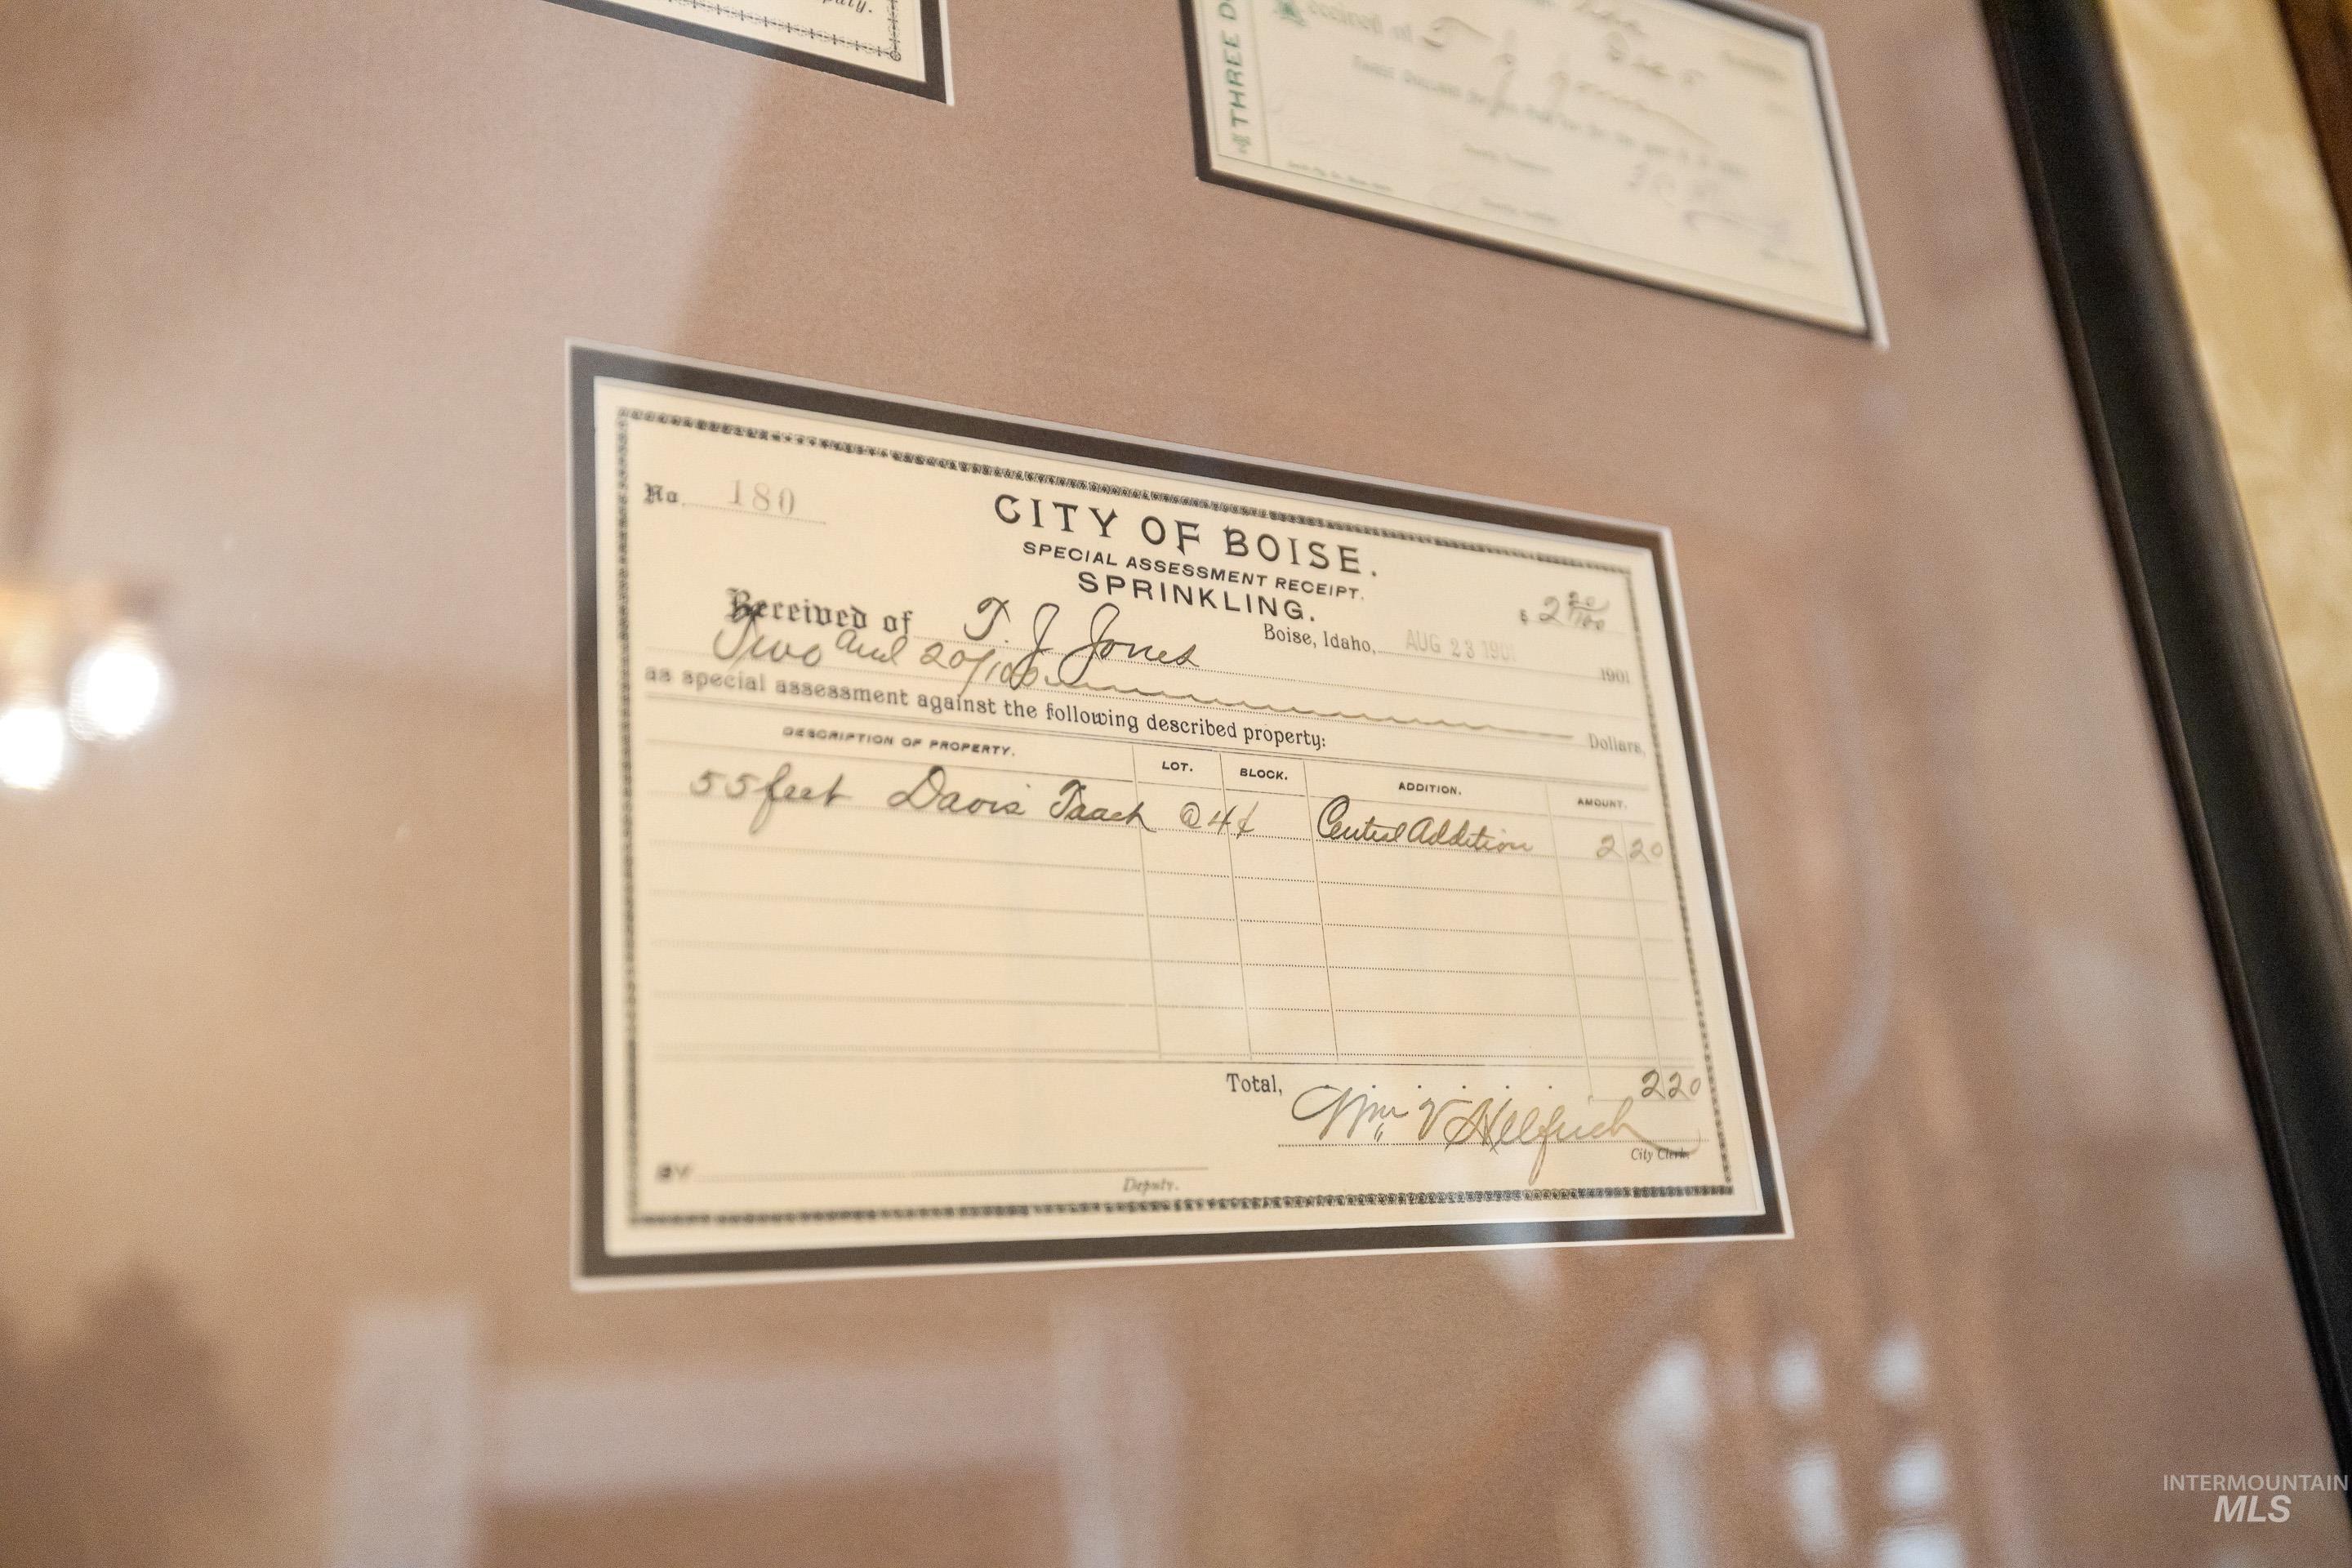 THREE D
Received of T J Jones
No. 180
CITY OF BOISE.
SPECIAL ASSESSMENT RECEIPT.
SPRINKLING.
$ 2 20/100
Boise, Idaho, AUG 23 1901 1901
Received of T. J Jones
Two and 20/100 Dollars,
as special assessment against the following described property:
DESCRIPTION OF PROPERTY. LOT. BLOCK. ADDITION. AMOUNT.
55 feet Davis @ 4¢ Central Addition 2 20
Total, 2 20
Wm V Helfrich
City Clerk.
BY
Deputy.
INTERMOUNTAIN
MLS